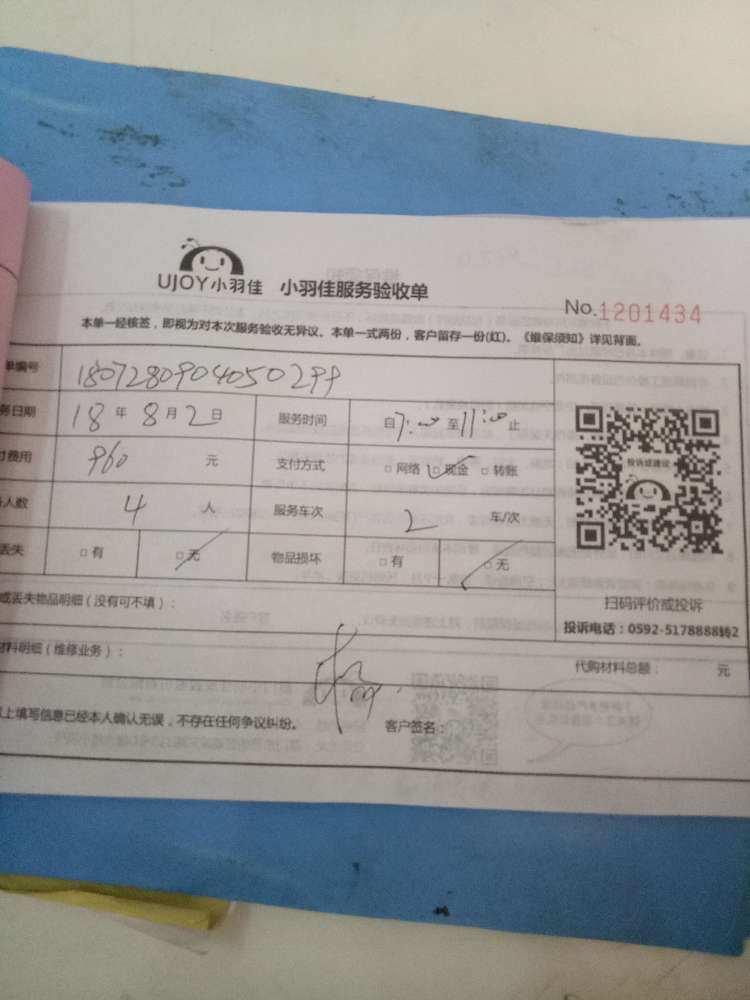 UJOY小羽佳 小羽佳服务验收单
No.1201434
本单一经核签，即视为对本次服务验收无异议、本单一式两份，客户留存一份(红)。《维保须知》详见背面。
单编号 1807280904050299
务日期 18年8月2日 服务时间 自7:00至11:00止
付费用 960元 支付方式 □网络 □现金 □转账
务人数 4人 服务车次 2 车/次
丢失 □有 □无 物品损坏 □有 □无
投诉或建议
扫码评价或投诉
投诉电话：0592-5178888转2
或丢失物品明细（没有可不填）：
材料明细（维修业务）： 代购材料总额： 元
以上填写信息已经本人确认无误，不存在任何争议纠纷。 客户签名：